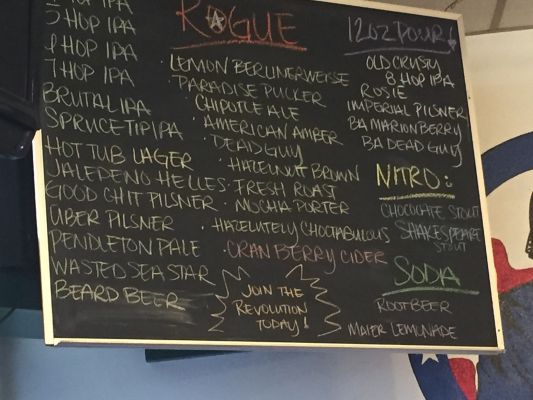 HOP IPA
HOP IPA
HOP IPA
7 HOP IPA
BRUTAL IPA
SPRUCE TIP IPA
HOT TUB LAGER
JALEPENO HELLES
GOOD CHIT PILSNER
ÜBER PILSNER
PENDLETON PALE
WASTED SEA STAR
BEARD BEER
ROGUE
· LEMON BERLINERWEISSE
· PARADISE PUCKER
· CHIPOTLE ALE
· AMERICAN AMBER
· DEAD GUY
· HAZELNUT BROWN
· FRESH ROAST
· MOCHA PORTER
· HAZELUTELY CHOCTABULOUS
· CRANBERRY CIDER
JOIN THE
REVOLUTION
TODAY!
12OZ POUR!
OLD CRUSTY
8 HOP IPA
ROSIE
IMPERIAL PILSNER
BA MARIONBERRY
BA DEAD GUY
NITRO:
CHOCOLATE STOUT
SHAKESPEARE
STOUT
SODA
ROOTBEER
MAIER LEMONADE